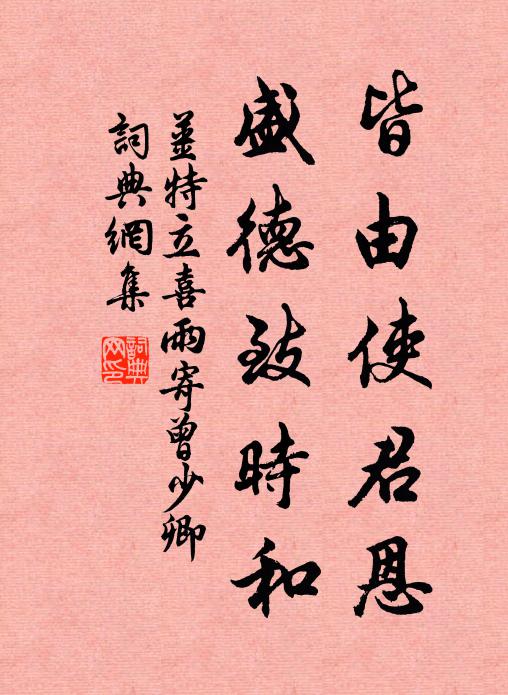 皆由使君恩
盛德致時和
姜特立喜雨寄曾少卿
詞典網集
詞典網印